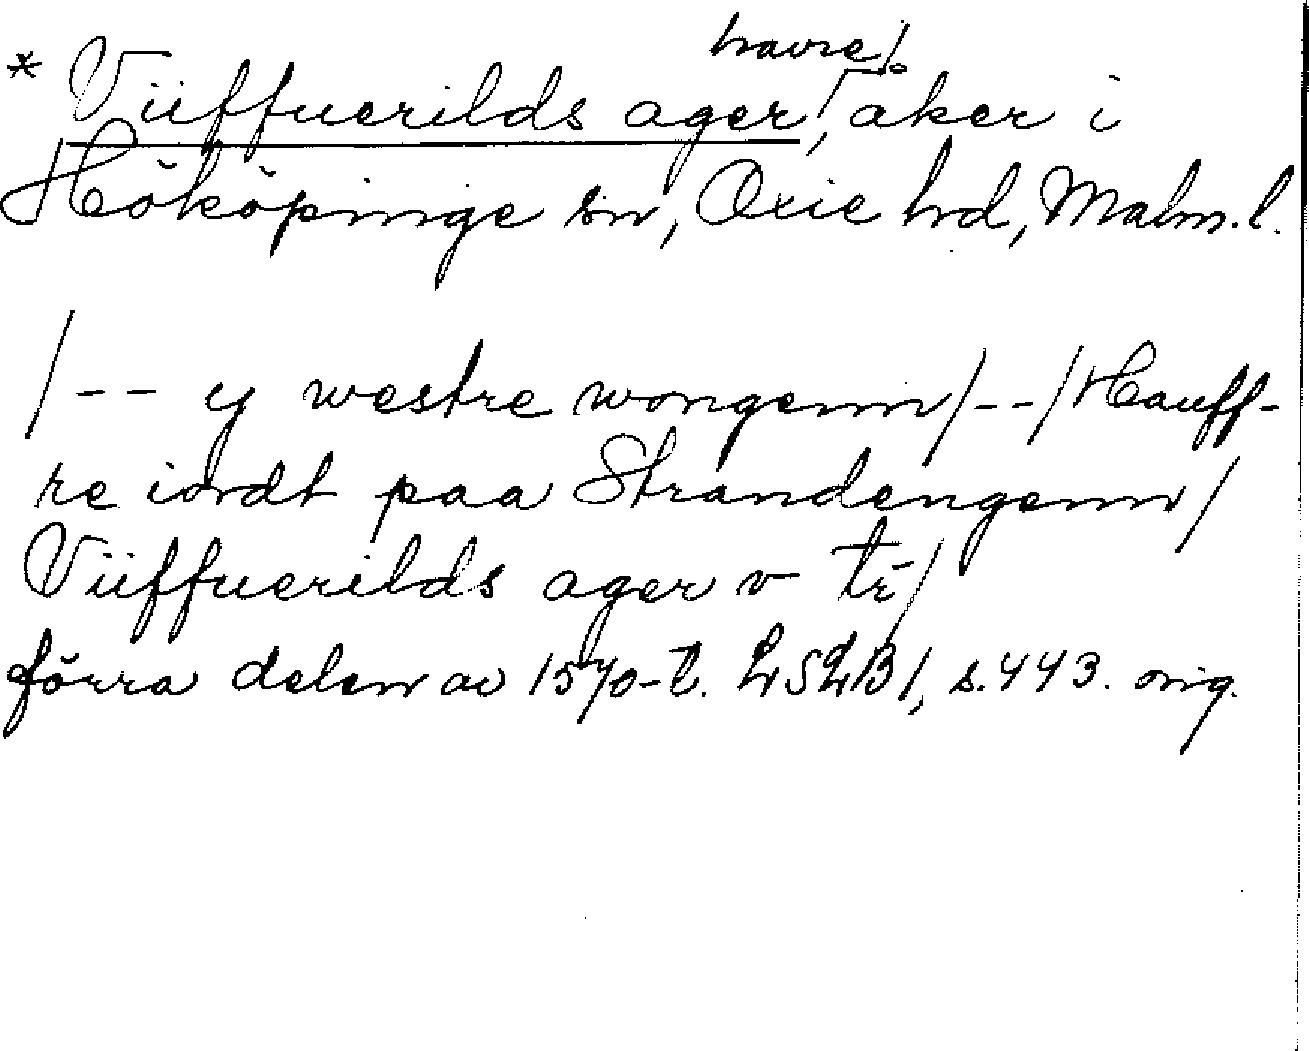 havre/
* Viiffuerilds ager, åker i
Hököpinge sn, Oxie hd, Malm. l.
/-- y westre wongenn/--/Hauff-
re iordt paa Strandengenn/
Viiffuerilds ager v- tr/
förra delen av 1570-t. LSLB 1, s. 443. orig.